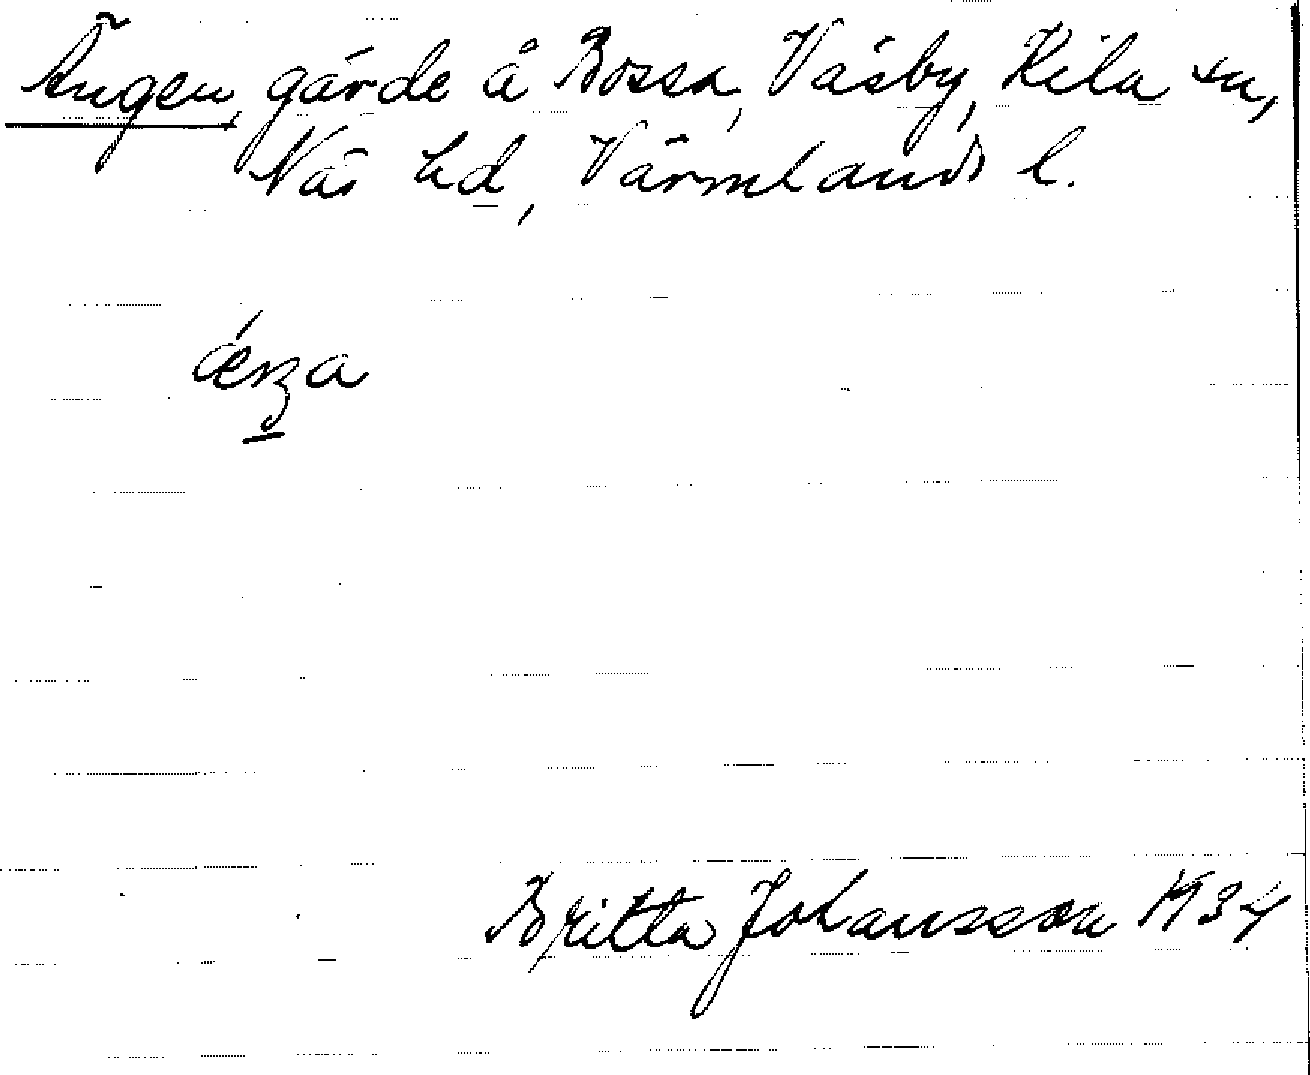 Ängen, gärde å Bossa, Väsby, Kila sn,
Näs hd, Värmlands l.
ǽŋa
Britta Johansson 1934